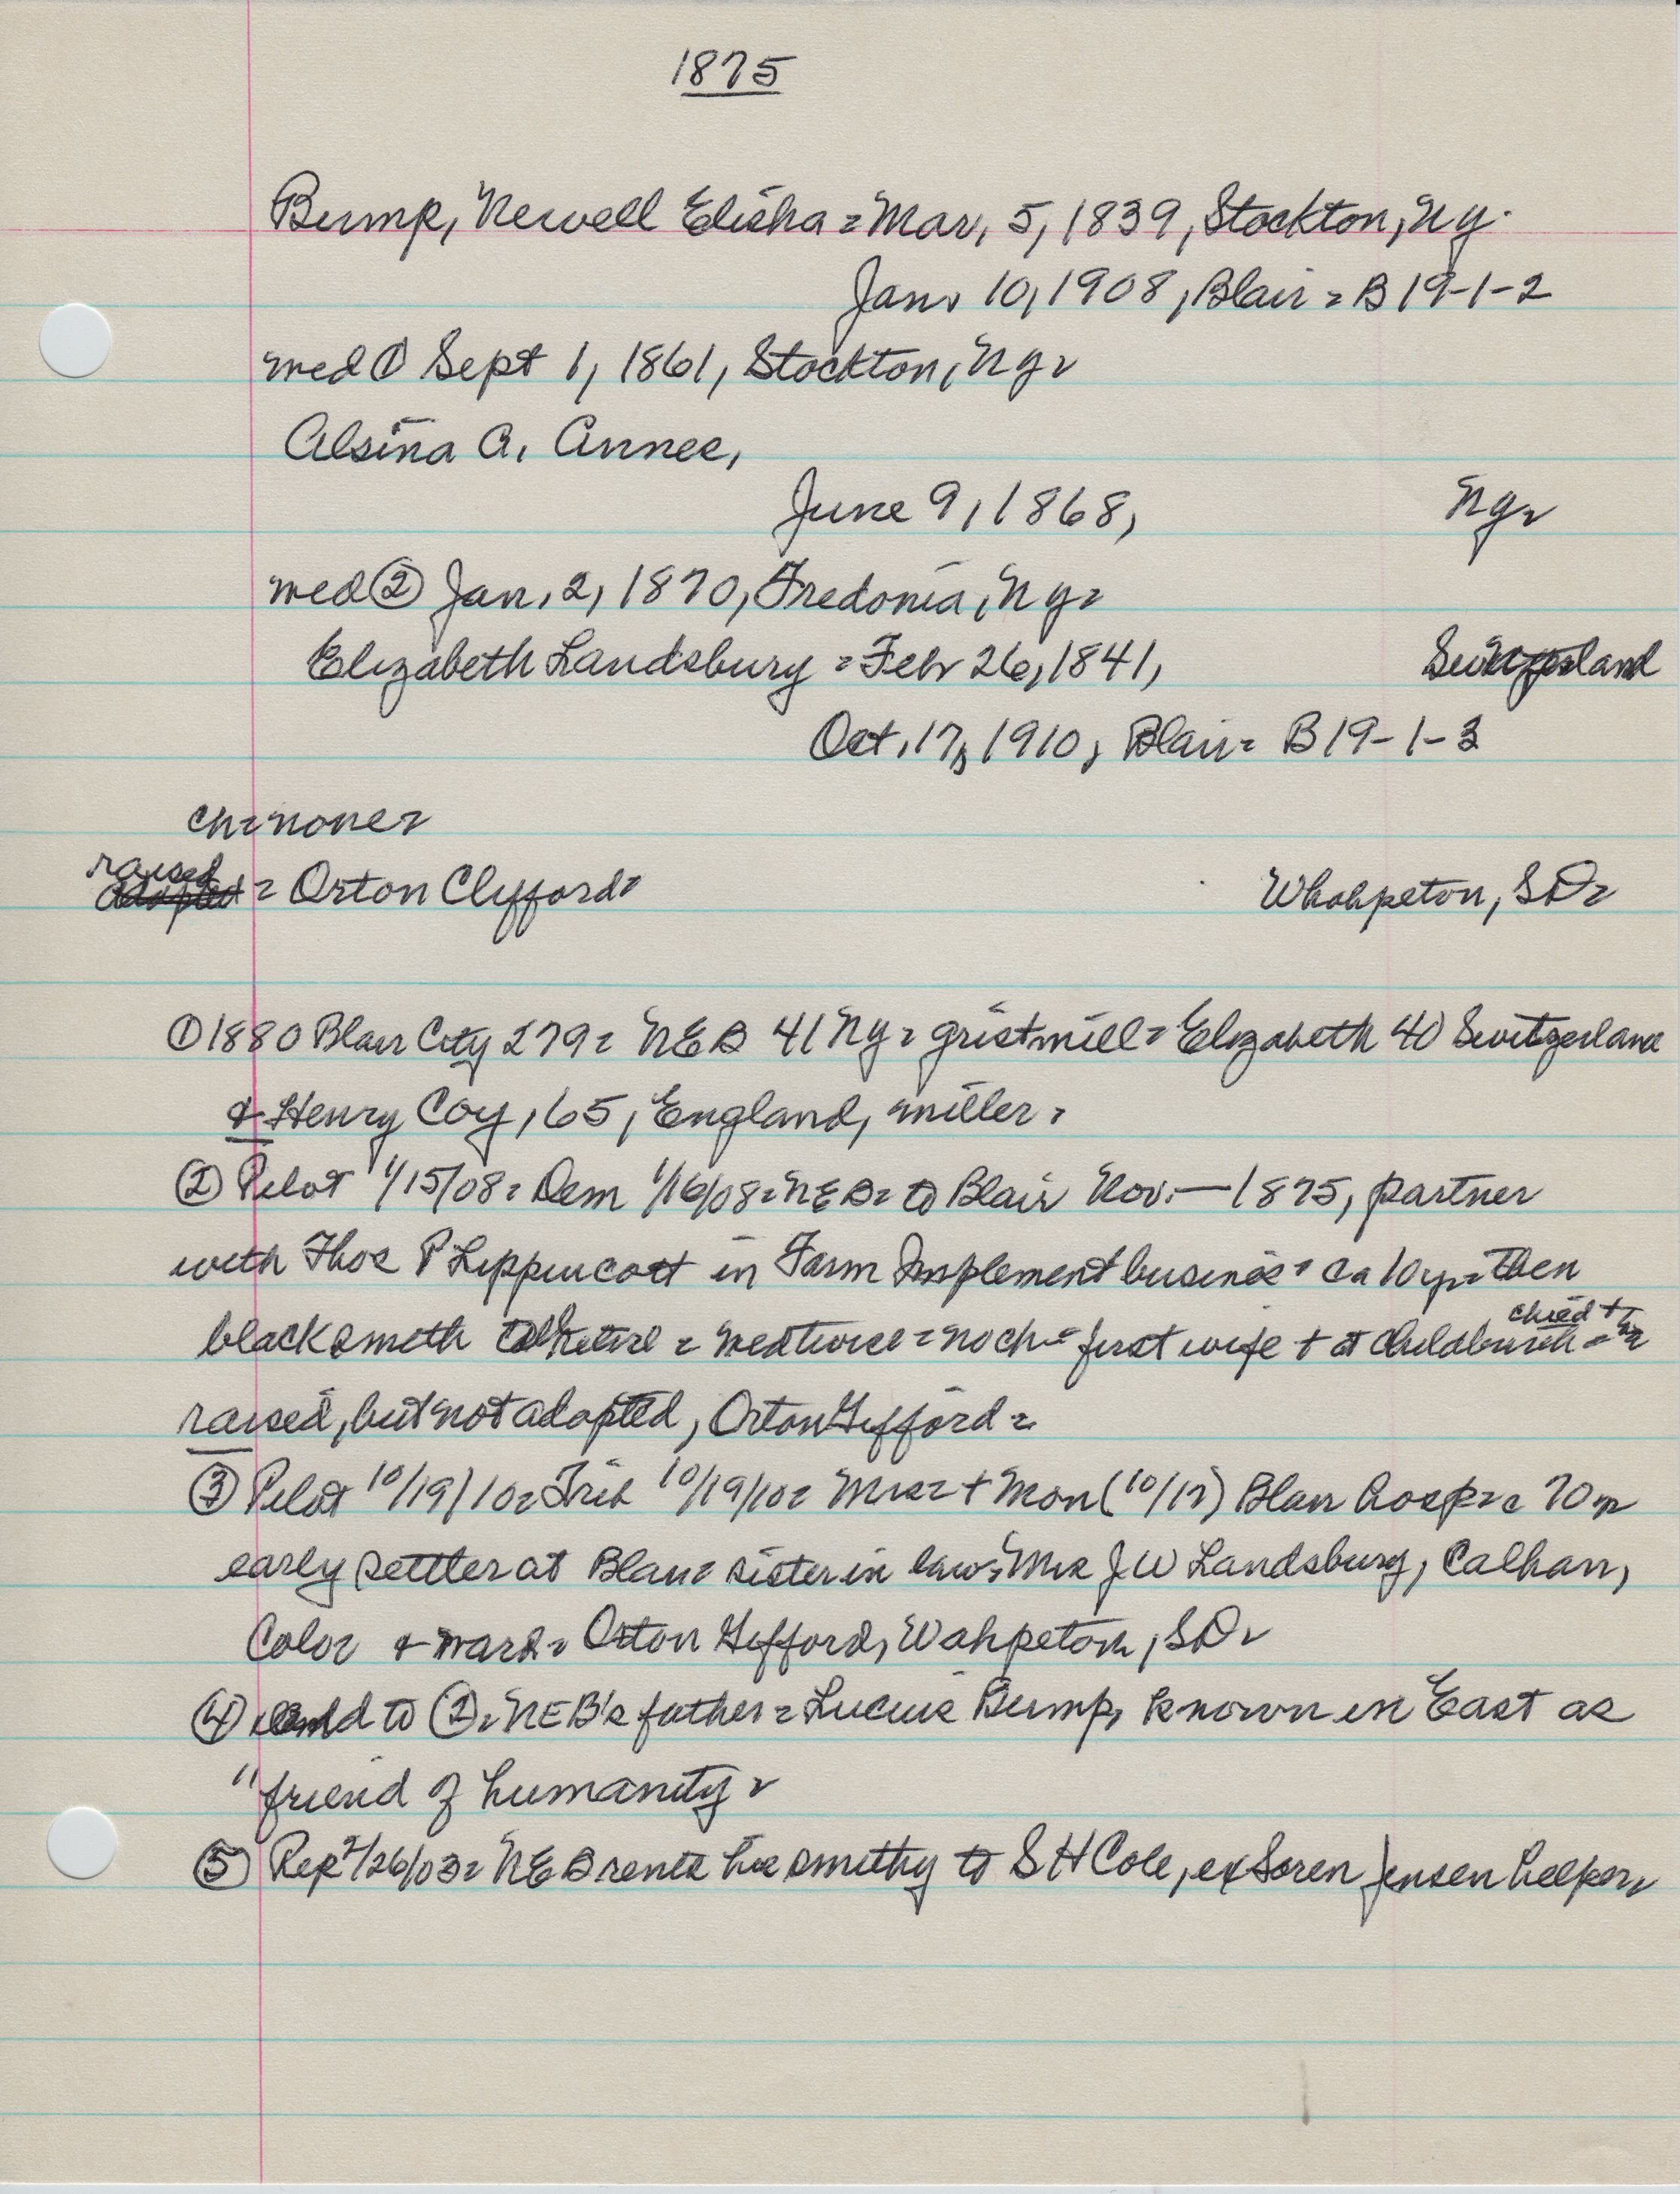 1875
Bump, Newell Elisha = Mar, 5, 1839, Stockton, NY.
Jan. 10, 1908, Blair = B 19-1-2
med ① Sept 1, 1861, Stockton, NY=
Alsina A. Annee,
June 9, 1868, NY=
med ② Jan. 2, 1870, Fredonia, NY=
Elizabeth Landsbury = Febr 26, 1841, Switzerland
Oct. 17, 1910, Blair = B 19-1-3
ch = none =
raised
adopted = Orton Clifford = Whahpeton, SD=
① 1880 Blair City 279 = NEB 41 NY = gristmill = Elizabeth 40 Switzerland
& Henry Coy, 65, England, miller =
② Pilot 1/15/08 = Dem 1/16/08 = NEB = to Blair Nov. — 1875, partner
with Thos P Lippincott in Farm Implement busines = ca 10 yr = Then
child +
blacksmith retire = med twice = no ch = first wife + at childbirth =
raised, but not adopted, Orton Gifford =
③ Pilot 10/19/10 = Trib 10/19/10 = Mrs = + Mon (10/17) Blair Hosp = 70
early settler at Blair = sister in law = Mrs J W Landsbury, Calhan,
Color & ward = Orton Gifford, Wahpeton, SD =
④ add to ②. NEB's father = Lucius Bump, known in East as
"friend of humanity =
⑤ Rep 2/26/03 = NEB rents his smithy to S H Cole, ex Soren Jensen helper =